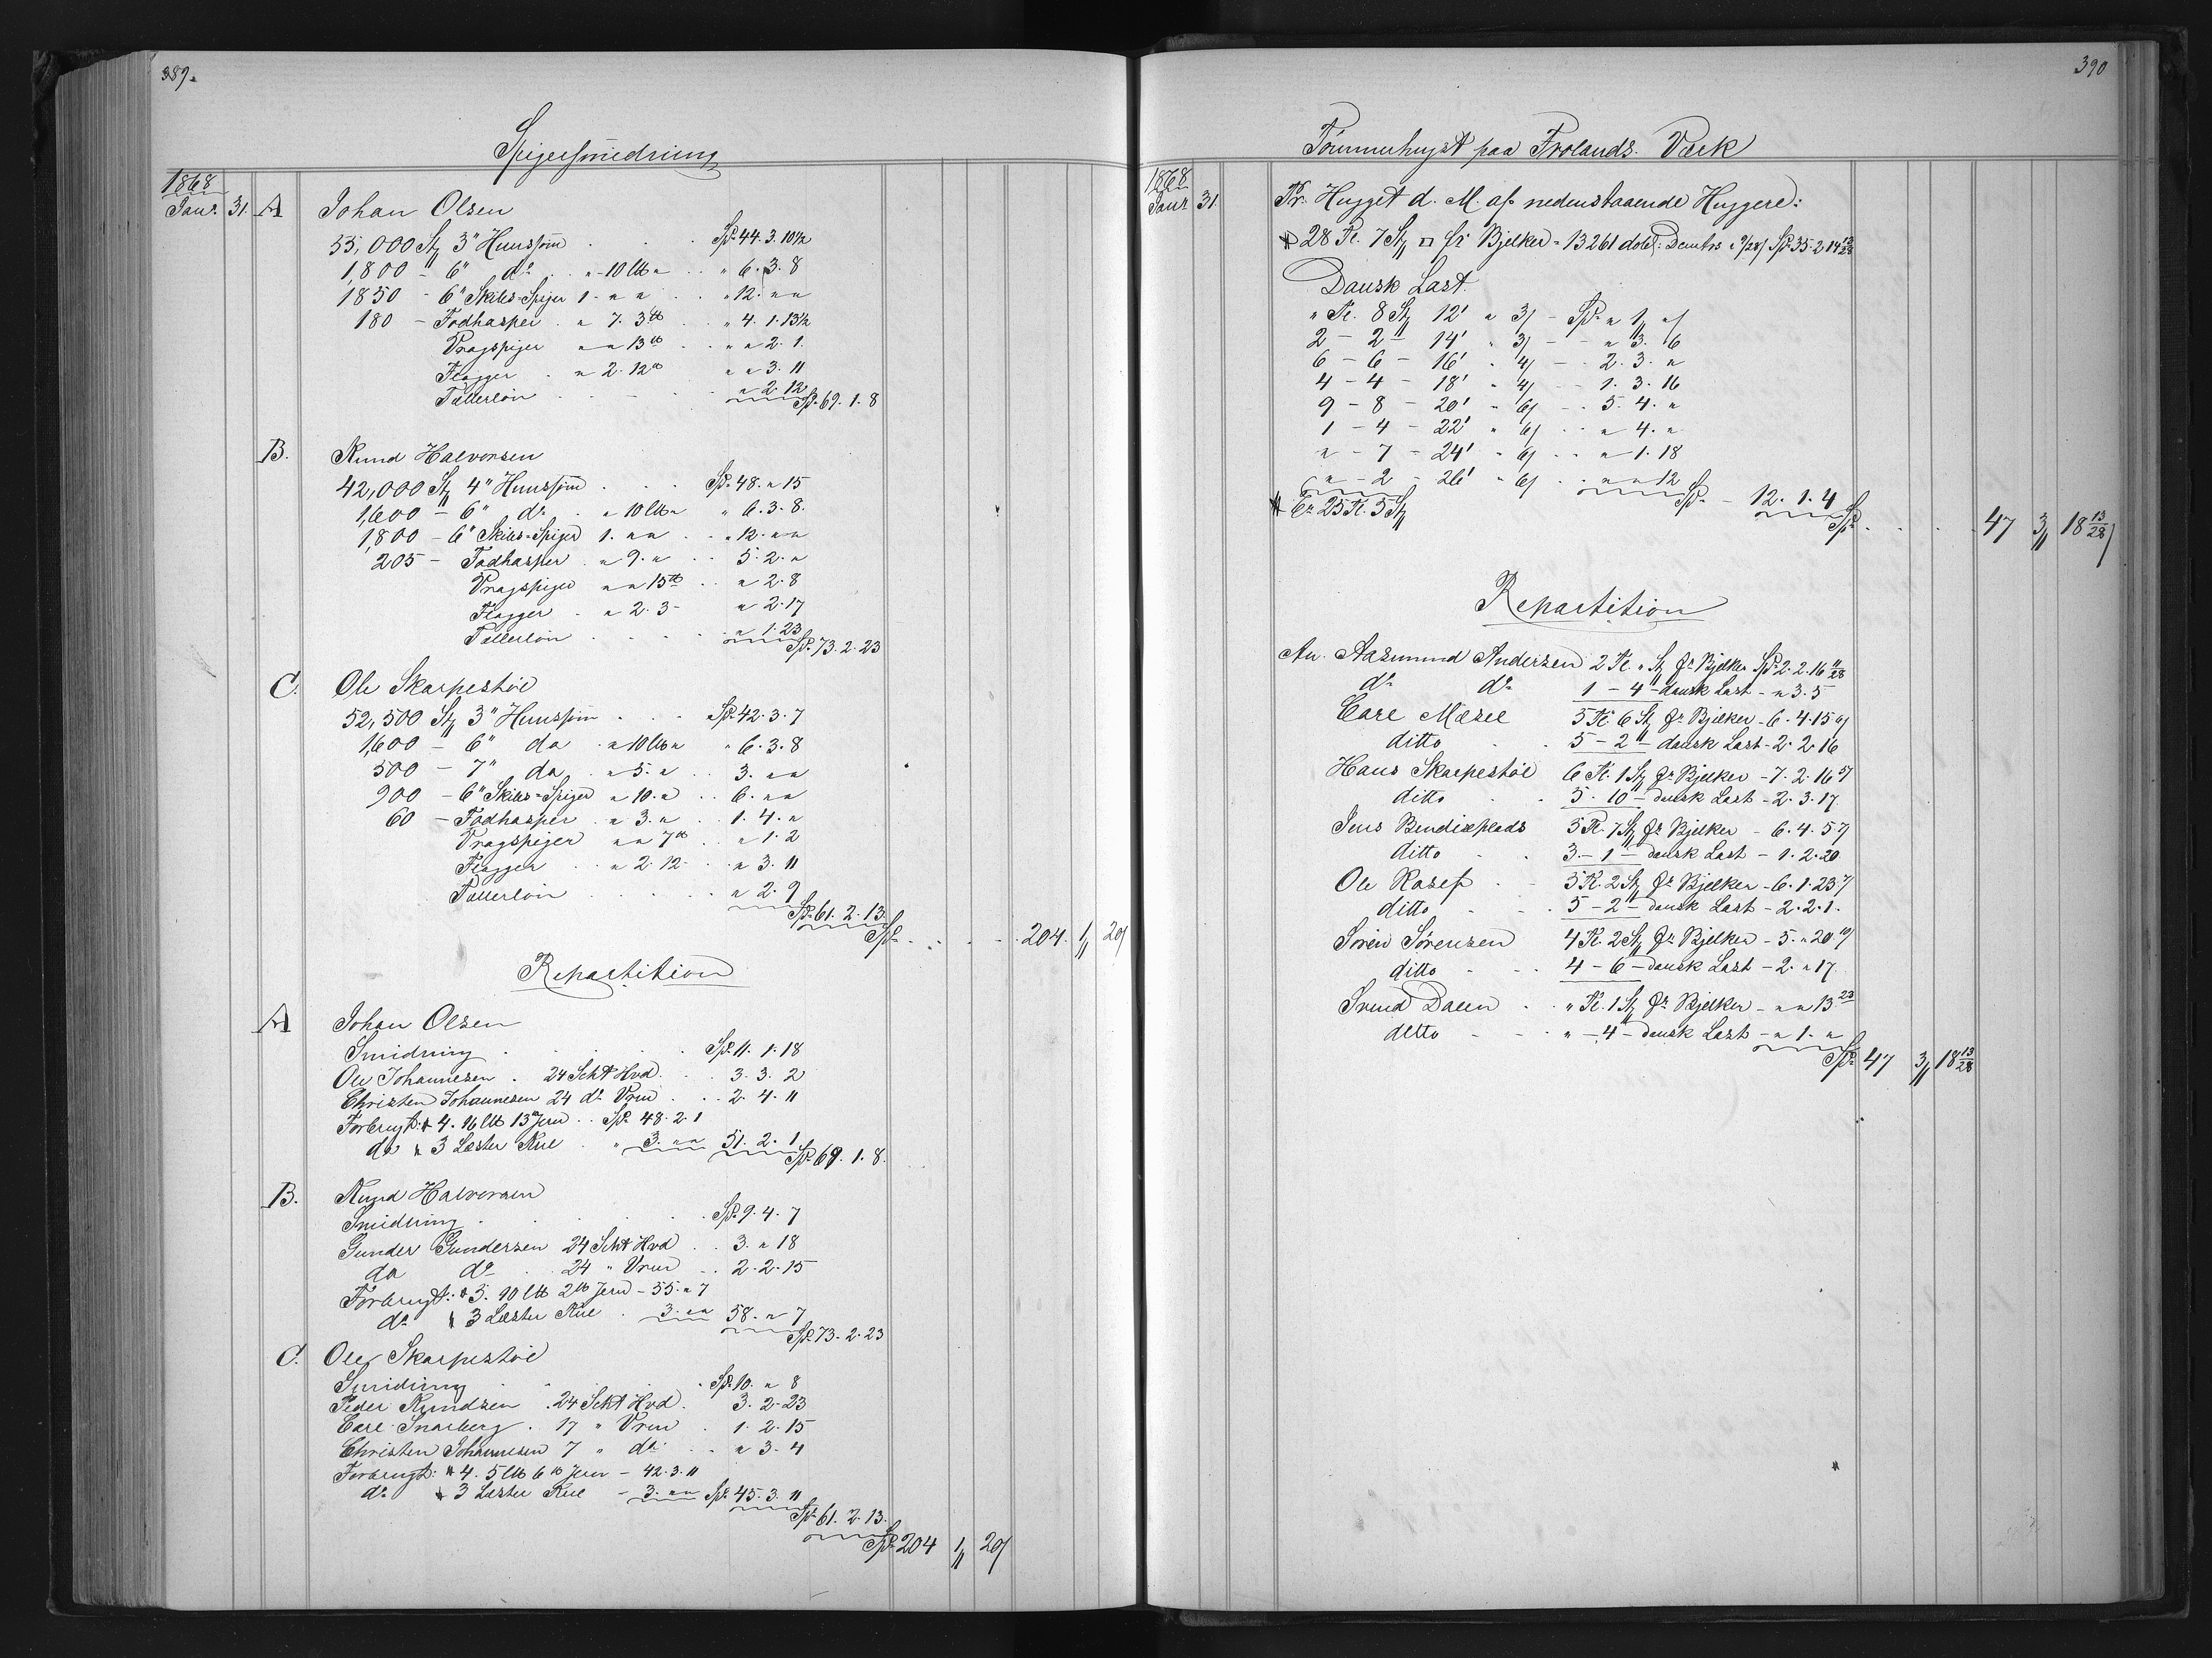 389.
Spigersmedning
1868
Janr. 31. A Johan Olsen
55,000 Stz 3" Huussøm . . . Spd 44. 3. 10½
1,800 - 6" do . " - 10 lb " . . " 6. 3. 8
1850 - 6" Skibs-Spiger 1. " " . . " 12. " "
180 - Fodhasper . " 7. 3 lb . . " 4. 1. 13½
Vragspiger " " 13 lb . . " " 2. 1.
Flagger . " 2. 12 lb " " 3. 11
Tællerløn . . . . " 2. 12
Spd 69. 1. 8
B. Knud Halvorsen
42,000 Stz 4" Huussøm . . . Spd 48. " 15
1,600 - 6" do . " 10 lb " " 6. 3. 8.
1,800 - 6" Skibs-Spiger 1. " " . . " 12. " "
205 - Fodhasper . " 9. " . . 5. 2. "
Vragspiger " " 15 lb . . " 2. 8
Flagger . " 2. 3 - " 2. 17
Tællerløn . . . . " 1. 23
Spd 73. 2. 23
C. Ole Skarpestøl
52,500 Stz 3" Huussøm . . . Spd 42. 3. 7
1,600 - 6" do . " 10 lb " " 6. 3. 8
500 - 7" do . " 5. " . . 3. " "
900 - 6" Skibs-Spiger " 10. " . . 6. " "
60 - Fodhasper . " 3. " . . 1. 4. "
Vragspiger " " 7 lb . . " 1. 2
Flagger . . " 2. 12 - . " 3. 11
Tællerløn . . . . . " 2. 9
Spd 61. 2. 13.
Spd . . . . . 204. 1/ 20/
Repartition
A Johan Olsen
Smidning . . . . Spd 11. 1. 18
Ole Johannesen . 24 Scht Hvd. . . 3. 3. 2
Christen Johannesen 24 do Vrm . . . 2. 4. 11
Forbrugt: 4. 16 lb 13 Jern . . Spd 48. 2. 1
do 3 Læster Kul . " 3. " " 51. 2. 1
Spd 69. 1. 8.
B. Knud Halvorsen
Smidning . . . . Spd 9. 4. 7
Gunder Gundersen 24 Scht Hvd . . 3. " 18
do do . 24 " Vrm . . 2. 2. 15
Forbrugt: 5. 10 lb 2 lb Jern - 55. " 7
do 3 Læster Kul . 3. " " 58. " 7
Spd 73. 2. 23
C. Ole Skarpestøl
Smidning . . . . Spd 10. " 8
Peder Knudsen . 24 Scht Hvd. 3. 2. 23
Carl Snarberg . 17 " Vrm . 1. 2. 15
Christen Johannesen 7 " do . . " 3. 4
Forbrugt: 4. 5 lb 6 lb Jern - 42. 3. 11
do 3 Læster Kul - 3. " " Spd 45. 3. 11
Spd 61. 2. 13.
Spd 204 1/ 20/
390
Tømmerhugst paa Frolands Værk
1868
Janr 31. Pr. Hugget d. M. af nedenstaaende Huggere:
28 Tl. 7 Stz fr Bjelker = 13261 Spd 35. 2. 14 13/28
Dansk Last.
" Tl. 8 Stz 12' a 3/ - Spd " 1/ "/
2 - 2 - 14' " 3/ - - " 3. 6
6 - 6 - 16' " 4/ - - 2. 3. "
4 - 4 - 18' " 4/ - - 1. 3. 16
9 - 8 - 20' " 6/ - - 5. 4. "
1 - 4 - 22' " 6/ . . " 4. "
" - 7 - 24' " 6/ . . " 1. 18
" - 2 - 26' " 6/ . . " " 12
Er 25 Tl. 5 Stz Spd - 12. 1. 4
Spd . . . . 47 3/ 18 13/28/
Repartition
An. Aasmund Andersen 2 Tl. " Stz fr Bjelker Spd 2. 2. 16 11/28
do do 1 - 4 - dansk Last - " 3. 5
Carl Mæsel 5 Tl. 6 Stz fr Bjelker - 6. 4. 15
ditto . . 5 - 2 - dansk Last - 2. 2. 16
Hans Skarpestøl 6 Tl. 1 Stz fr Bjelker - 7. 2. 16
ditto . . 5. 10 - dansk Last - 2. 3. 17.
Jens Bendixplads 5 Tl. 7 Stz fr Bjelker - 6. 4. 5
ditto . . 3 - 1 - dansk Last - 1. 2. 20
Ole Rosef . - 5 Tl. 2 Stz fr Bjelker - 6. 1. 23
ditto - . 5 - 2 - dansk Last - 2. 2. 1.
Søren Sørensen 4 Tl. 2 Stz fr Bjelker - 5. " 20
ditto - . . 4 - 6 - dansk Last - 2. " 17.
Svend Dalen . . " Tl. 1 Stz fr Bjelker - " " 13 23
ditto - - . " - 4 - dansk Last - " 1. "
Spd 47 3/ 18 13/28